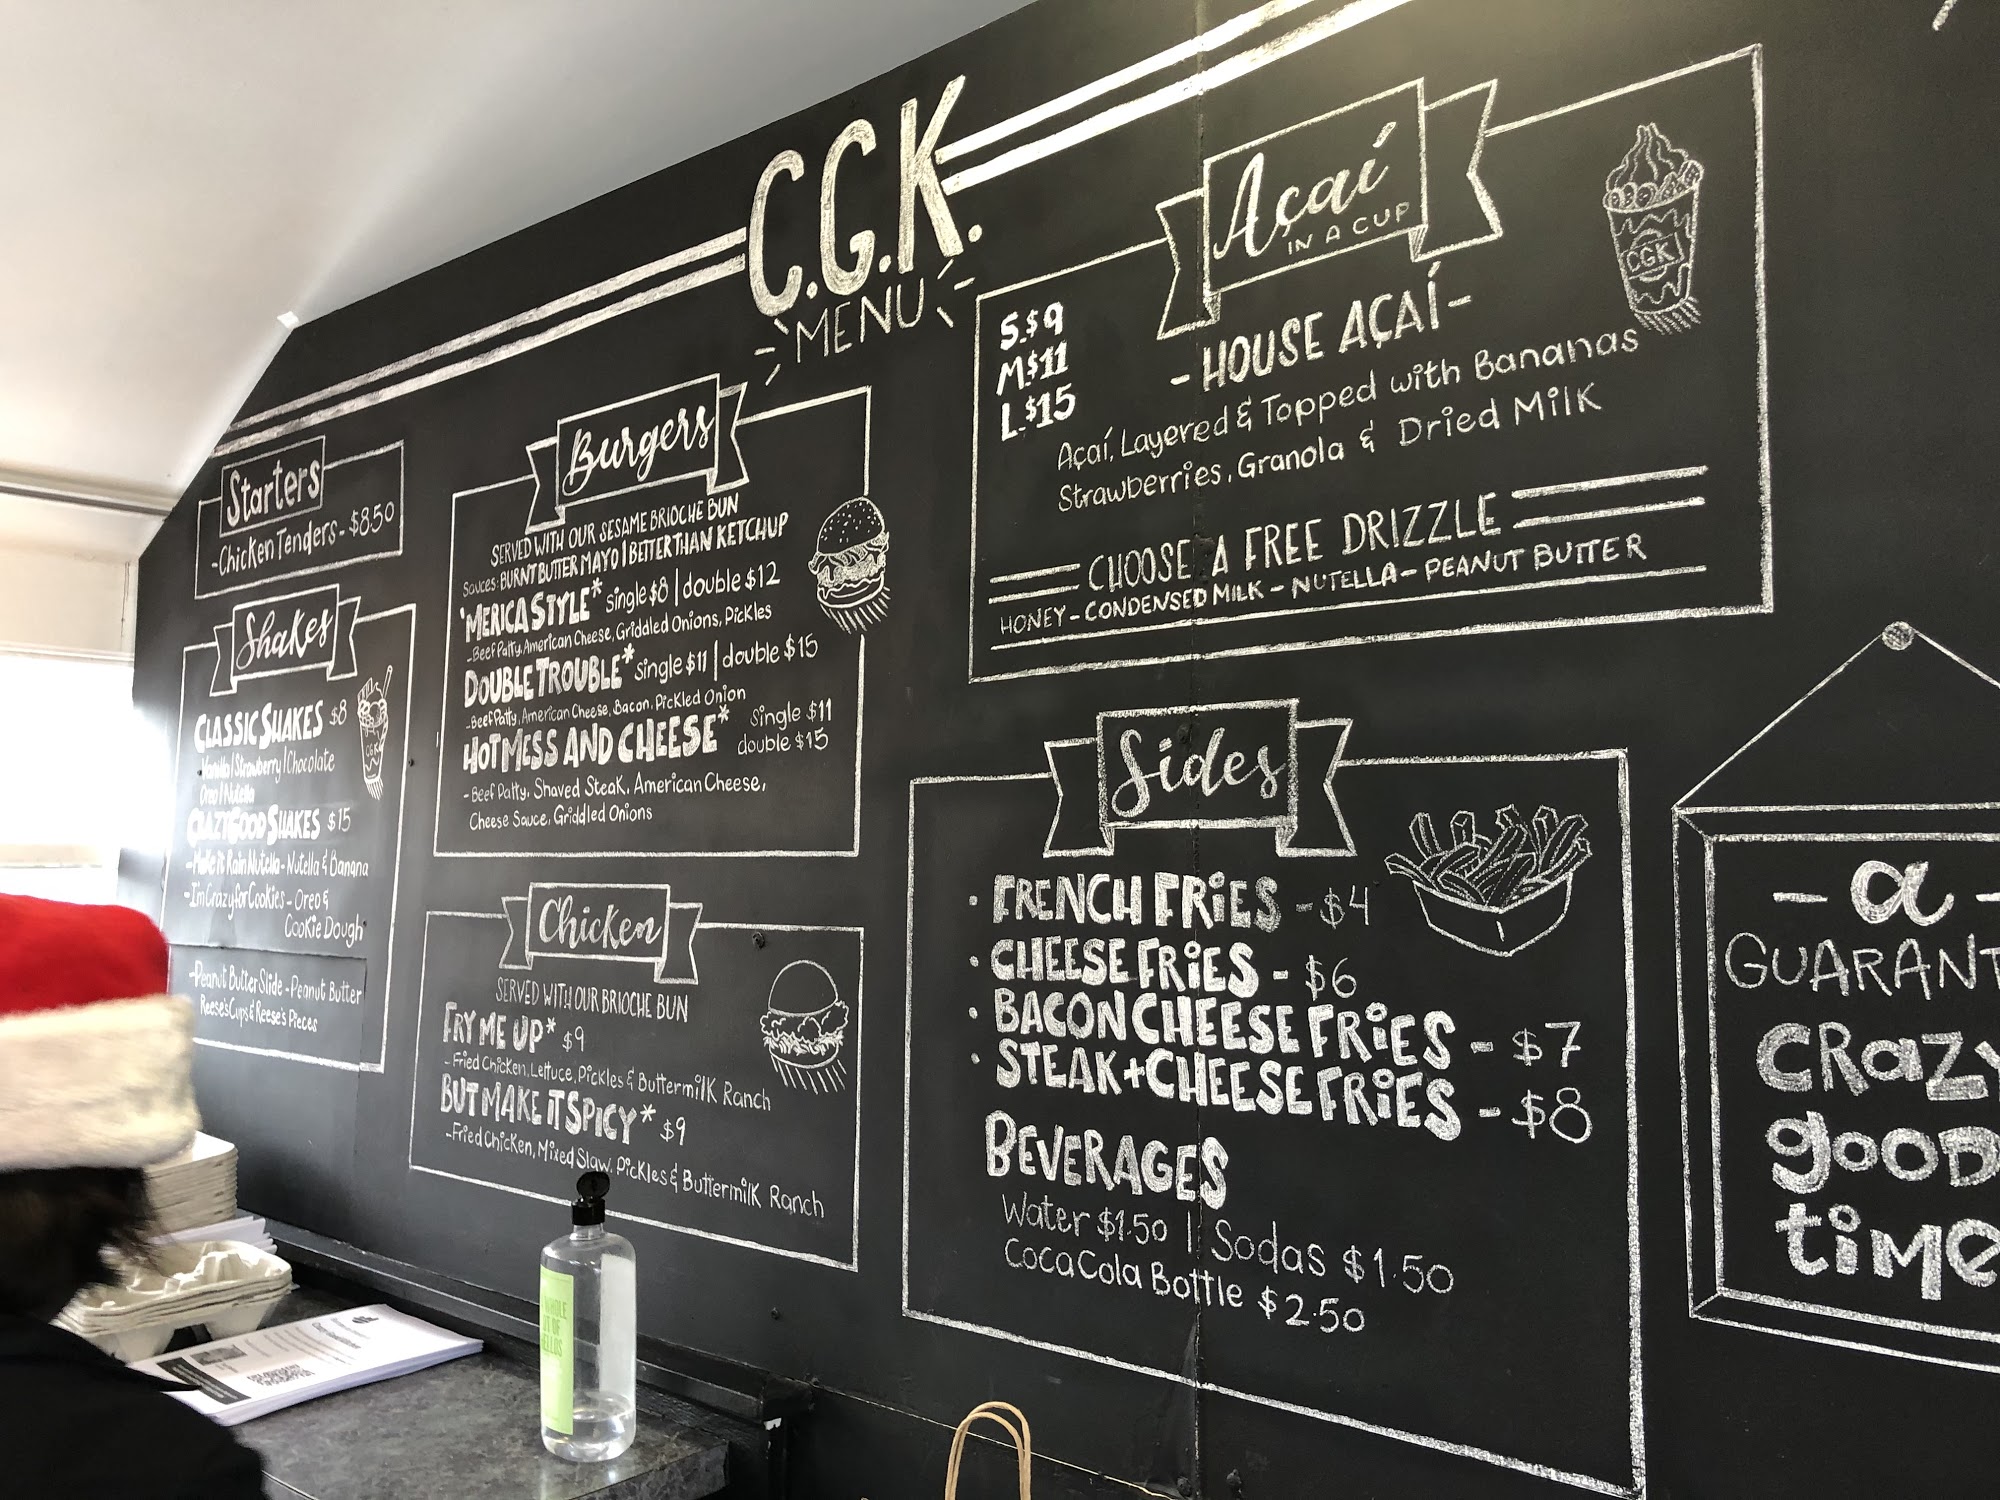 C.G.K.
MENU
Starters
-Chicken Tenders - $8.50
Shakes
CLASSIC SHAKES $8
Vanilla | Strawberry | Chocolate
Oreo | Nutella
CRAZY GOOD SHAKES $15
-Make it Rain Nutella - Nutella & Banana
-I'm Crazy for Cookies - Oreo &
Cookie Dough
-Peanut Butter Slide - Peanut Butter
Reese's Cups & Reese's Pieces
CGK
Burgers
SERVED WITH OUR SESAME BRIOCHE BUN
Sauces: BURNT BUTTER MAYO | BETTER THAN KETCHUP
'MERICA STYLE* single $8 | double $12
-Beef Patty, American Cheese, Griddled Onions, Pickles
DOUBLE TROUBLE* single $11 | double $15
-Beef Patty, American Cheese, Bacon, Pickled Onion
HOT MESS AND CHEESE* single $11
double $15
-Beef Patty, Shaved Steak, American Cheese,
Cheese Sauce, Griddled Onions
Chicken
SERVED WITH OUR BRIOCHE BUN
FRY ME UP* $9
- Fried Chicken, Lettuce, Pickles & Buttermilk Ranch
BUT MAKE iT SPICY* $9
-Fried Chicken, Mixed Slaw, Pickles & Buttermilk Ranch
Açaí
IN A CUP
S.$9
M.$11
L.$15
CGK
- HOUSE AÇAÍ -
Açaí, Layered & Topped with Bananas
Strawberries, Granola & Dried Milk
CHOOSE A FREE DRIZZLE
HONEY - CONDENSED MILK - NUTELLA - PEANUT BUTTER
Sides
• FRENCH FRiES - $4
• CHEESE FRiES - $6
• BACON CHEESE FRiES - $7
• STEAK + CHEESE FRiES - $8
BEVERAGES
Water $1.50 | Sodas $1.50
Coca Cola Bottle $2.50
- a -
GUARANT
CRaZy
gOOD
tiMe